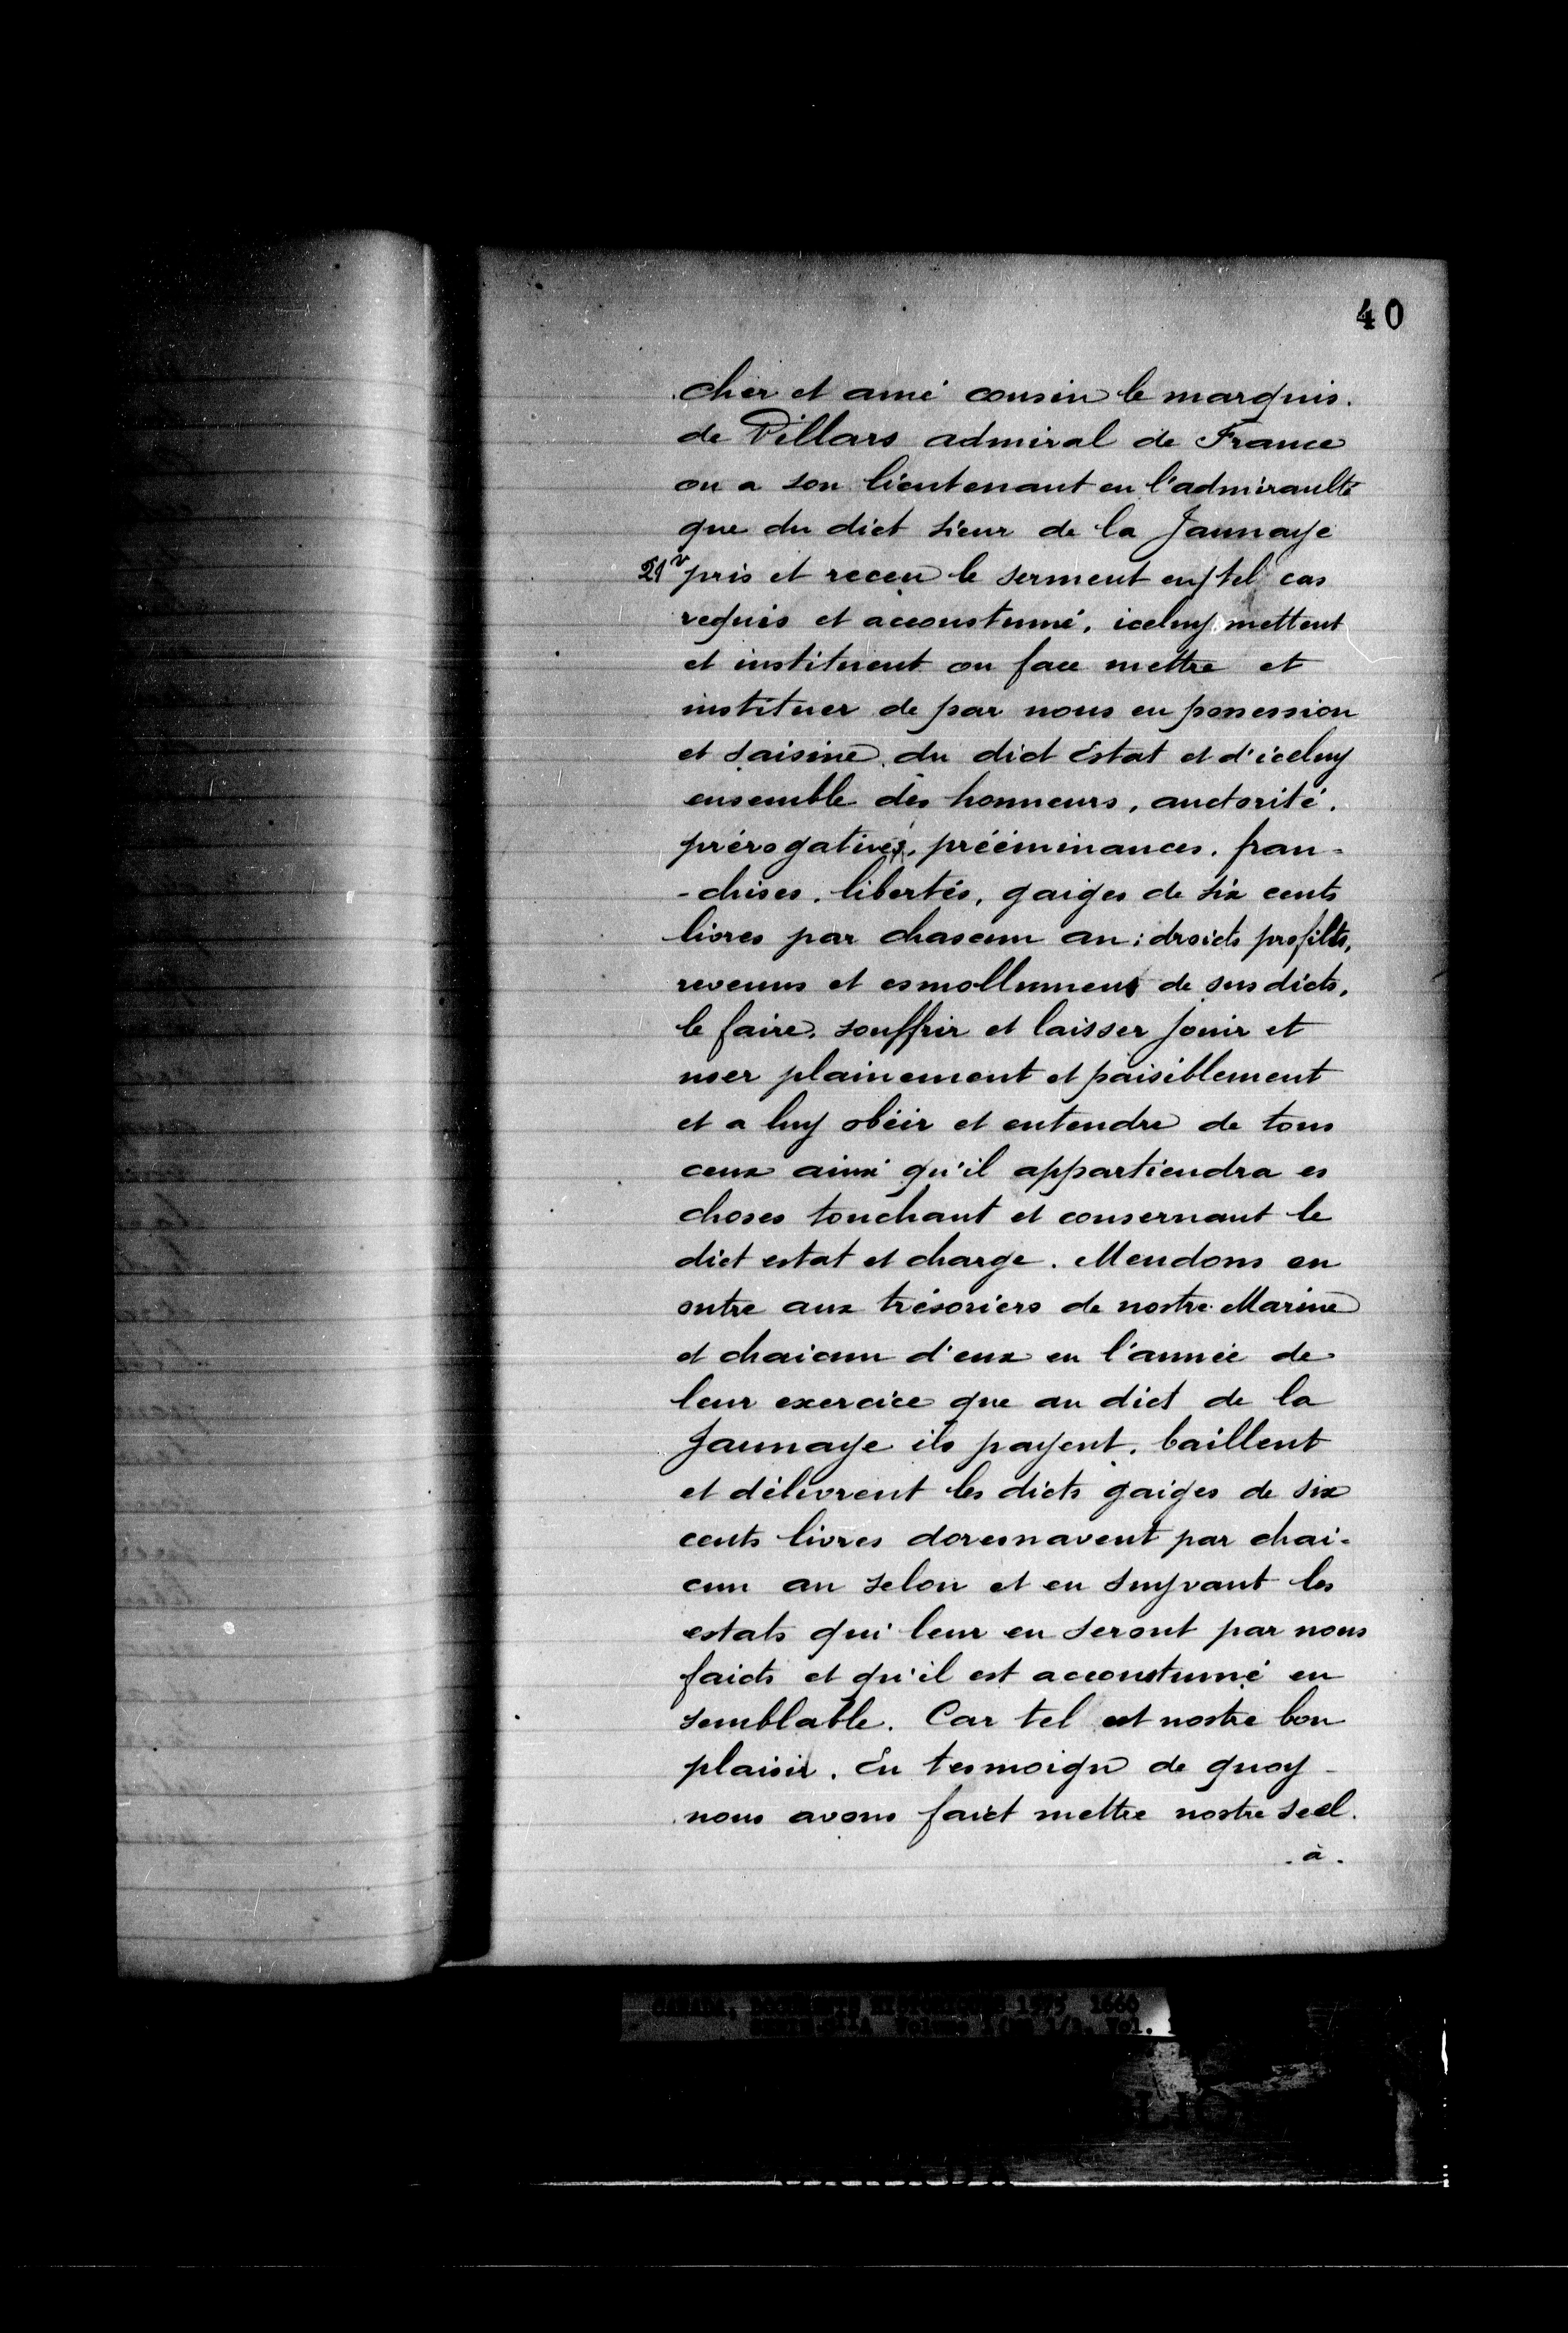 40
cher et amé cousin le marquis.
de Villars admiral de France
ou a son lieutenant en l'admiraulté
que du dict sieur de la Jaunaye
21v pris et receu le serment en tel cas
requis et accoustumé, iceluy mettent
et instituent ou face mettre et
instituer de par nous en possession
et saisine du dict Estat et d'iceluy
ensemble des honneurs, auctorité.
prérogatives, prééminances. fran-
-chises. libertés, gaiges de six cents
livres par chascun an; droicts profilts,
revenus et esmollumens de susdicts,
le faire, souffrir et laisser jouir et
user plainement et paisiblement
et a luy obéir et entendre de tous
ceux ainsi qu'il appartiendra es
choses touchant et consernant le
dict estat et charge. Mendons en
outre aux trésoriers de nostre Marine
et chaicun d'eux en l'année de
leur exercice que au dict de la
Jaunaye ils payent, baillent
et délivrent les dicts gaiges de six
cents livres doresnavent par chai-
cun an selon et en suyvant les
estats qui leur en seront par nous
faicts et qu'il est accoustumé en
semblable. Car tel est nostre bon
plaisir. En tesmoign de quoy
nous avons faict mettre nostre seel.
. à .
CANADA, DOCUMENTS HISTORIQUES 1595 1660